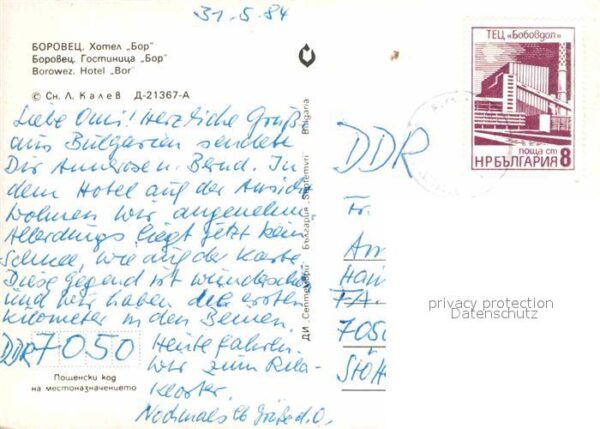 31.5.84
БОРОВЕЦ. Хотел „Бор"
Боровец. Гостиница „Бор"
Borowez. Hotel „Bor"
© Сн. Л. Калев Д-21367-А
Liebe Omi! Herzliche Grüße
aus Bulgarien sendet
Dir Annerose u. Bernd. In
dem Hotel auf der Ansicht
wohnen wir angenehm
Allerdings liegt jetzt kein
Schnee, wie auf der Karte.
Diese Gegend ist wundersch
und wir haben die ersten
Kilometer in den Beinen.
Heute fahren
wir zum Rila-
Kloster.
Nochmals lb Grüße d. O.
DDR 7050
Пощенски код
на местоназначението
ДИ „Септември" България „Septemvri" Bulgaria
ТЕЦ „Бобовдол"
поща ст
НР БЪЛГАРИЯ 8
DDR
Fr.
Ann
Hain
7050
Stöt
privacy protection
Datenschutz